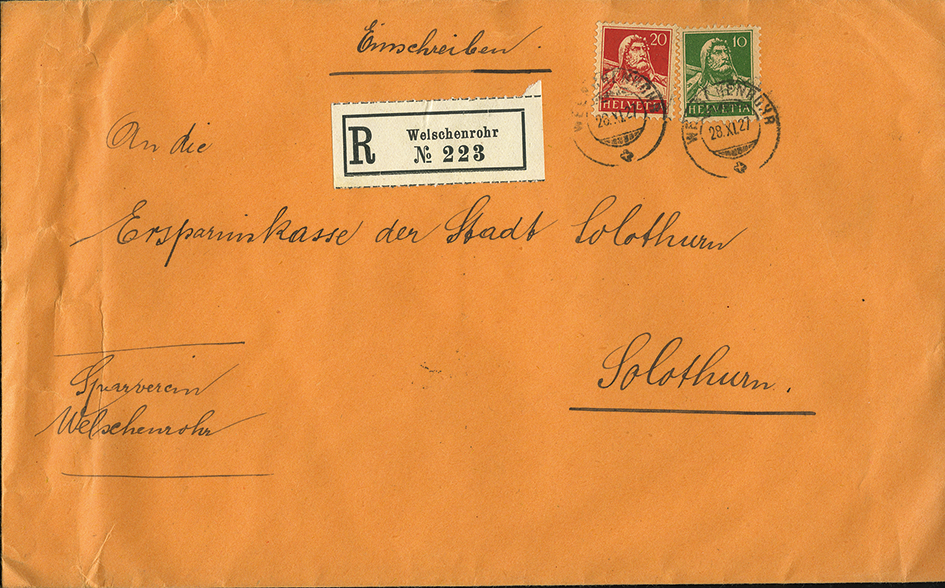 Einschreiben.
20
HELVETIA
10
HELVETIA
WELSCHENROHR
28.XI.27
WELSCHENROHR
28.XI.27
R
Welschenrohr
№ 223
An die
Ersparniskasse der Stadt Solothurn
Solothurn.
Sparverein
Welschenrohr